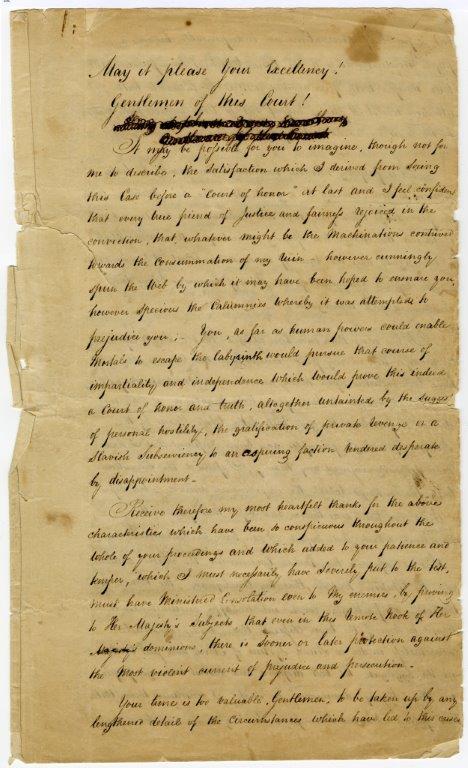 1.
May it please Your Excellency!
Gentlemen of this Court!
It may be possible for you to imagine, though not for
me to describe, the satisfaction which I derived from seeing
this Case before a "Court of honor" at last and I feel confident
that every true friend of Justice and fairness rejoiced in the
conviction, that, whatever might be the Machinations contrived
towards the Consummation of my ruin – however cunningly
spun the Web by which it may have been hoped to ensnare you,
however specious the Calumnies whereby it was attempted to
prejudice you; – You, as far as human powers could enable
Mortals to escape the labyrinth would pursue that course of
impartiality and independence which would prove this indeed
a Court of honor and truth, altogether untainted by the
of personal hostility, the gratification of private revenge or a
Slavish Subserviency to an aspiring faction rendered desperate
by disappointment –
Receive therefore my most heartfelt thanks for the above
characteristics which have been so conspicuous throughout the
whole of your proceedings and which added to your patience and
temper, which I must necessarily have severely put to the test,
must have Ministered Consolation even to My enemies, by proving
to Her Majesty's Subjects that even in this remote Nook of Her
Majesty's dominions, there is sooner or later protection against
the most violent current of prejudice and persecution –
Your time is too valuable, Gentlemen, to be taken up by any
lengthened detail of the Circumstances which have led to this crisis